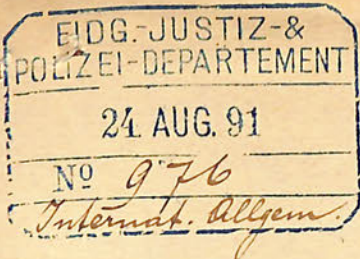 EIDG.-JUSTIZ-&
POLIZEI-DEPARTEMENT
24. AUG. 91
Nº 976
Internat. Allgem.